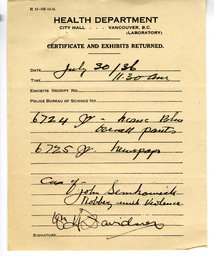 HEALTH DEPARTMENT
CITY HALL . . . VANCOUVER, B.C.
(LABORATORY)
CERTIFICATE AND EXHIBITS RETURNED.
DATE July 30/36
TIME 11:30 am
EXHIBITS RECEIPT NO.
POLICE BUREAU OF SCIENCE NO.
6724 Jr. Blue
overall pants
6725 Jr. Newspaper
Case of
John
Robbery with Violence
SIGNATURE